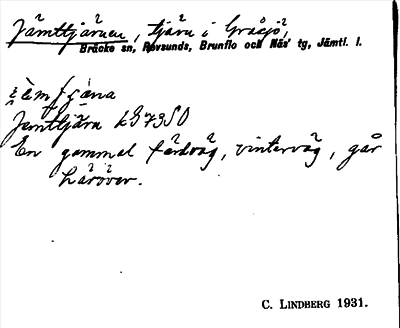 Jämttjärnen, tjärn i Gråsjö,
Bräcke sn, Revsunds, Brunflo och Näs' tg, Jämtl. l.
Jämttjärn
En gammal färdväg, vinterväg, går
häröver.
C. LINDBERG 1931.